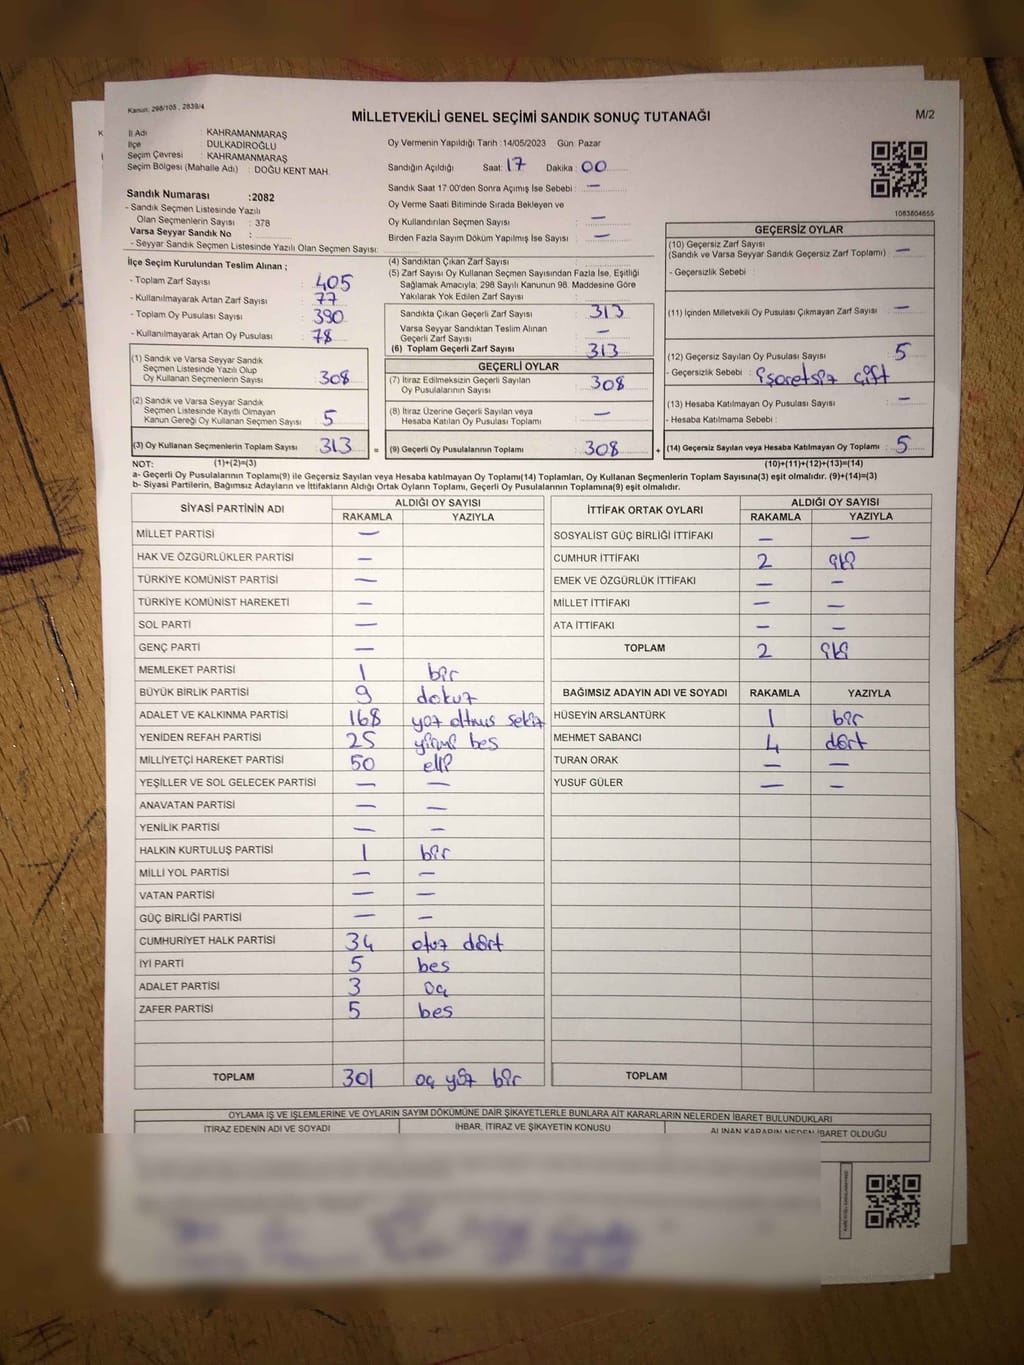 Kanun: 298/105, 2839/4
MİLLETVEKİLİ GENEL SEÇİMİ SANDIK SONUÇ TUTANAĞI
M/2
İl Adı : KAHRAMANMARAŞ
İlçe : DULKADİROĞLU
Seçim Çevresi : KAHRAMANMARAŞ
Seçim Bölgesi (Mahalle Adı) : DOĞU KENT MAH.
Sandık Numarası :2082
- Sandık Seçmen Listesinde Yazılı
Olan Seçmenlerin Sayısı : 378
Varsa Seyyar Sandık No :
- Seyyar Sandık Seçmen Listesinde Yazılı Olan Seçmen Sayısı:
Oy Vermenin Yapıldığı Tarih : 14/05/2023 Gün: Pazar
Sandığın Açıldığı Saat: 17 Dakika : 00
Sandık Saat 17:00'den Sonra Açımış İse Sebebi : —
Oy Verme Saati Bitiminde Sırada Bekleyen ve
Oy Kullandırılan Seçmen Sayısı : —
Birden Fazla Sayım Döküm Yapılmış İse Sayısı : —
1083804655
İlçe Seçim Kurulundan Teslim Alınan ;
- Toplam Zarf Sayısı : 405
- Kullanılmayarak Artan Zarf Sayısı : 77
- Toplam Oy Pusulası Sayısı : 390
- Kullanılmayarak Artan Oy Pusulası : 78
(1) Sandık ve Varsa Seyyar Sandık
Seçmen Listesinde Yazılı Olup
Oy Kullanan Seçmenlerin Sayısı : 308
(2) Sandık ve Varsa Seyyar Sandık
Seçmen Listesinde Kayıtlı Olmayan
Kanun Gereği Oy Kullanan Seçmen Sayısı : 5
(3) Oy Kullanan Seçmenlerin Toplam Sayısı : 313
(4) Sandıktan Çıkan Zarf Sayısı :
(5) Zarf Sayısı Oy Kullanan Seçmen Sayısından Fazla İse, Eşitliği
Sağlamak Amacıyla; 298 Sayılı Kanunun 98. Maddesine Göre
Yakılarak Yok Edilen Zarf Sayısı :
Sandıkta Çıkan Geçerli Zarf Sayısı : 313
Varsa Seyyar Sandıktan Teslim Alınan
Geçerli Zarf Sayısı : —
(6) Toplam Geçerli Zarf Sayısı : 313
GEÇERLİ OYLAR
(7) İtiraz Edilmeksizin Geçerli Sayılan
Oy Pusulalarının Sayısı : 308
(8) İtiraz Üzerine Geçerli Sayılan veya
Hesaba Katılan Oy Pusulası Toplamı : —
= (9) Geçerli Oy Pusulalarının Toplamı : 308
GEÇERSİZ OYLAR
(10) Geçersiz Zarf Sayısı
(Sandık ve Varsa Seyyar Sandık Geçersiz Zarf Toplamı) : —
- Geçersizlik Sebebi :
(11) İçinden Milletvekili Oy Pusulası Çıkmayan Zarf Sayısı : —
(12) Geçersiz Sayılan Oy Pusulası Sayısı : 5
- Geçersizlik Sebebi : işaretsiz çift
(13) Hesaba Katılmayan Oy Pusulası Sayısı : —
- Hesaba Katılmama Sebebi :
+ (14) Geçersiz Sayılan veya Hesaba Katılmayan Oy Toplamı : 5
NOT: (1)+(2)=(3)
(10)+(11)+(12)+(13)=(14)
a- Geçerli Oy Pusulalarının Toplamı(9) ile Geçersiz Sayılan veya Hesaba katılmayan Oy Toplamı(14) Toplamları, Oy Kullanan Seçmenlerin Toplam Sayısına(3) eşit olmalıdır. (9)+(14)=(3)
b- Siyasi Partilerin, Bağımsız Adayların ve İttifakların Aldığı Oyların Toplamı, Geçerli Oy Pusulalarının Toplamına(9) eşit olmalıdır.
SİYASİ PARTİNİN ADI
ALDIĞI OY SAYISI
RAKAMLA YAZIYLA
MİLLET PARTİSİ —
HAK VE ÖZGÜRLÜKLER PARTİSİ —
TÜRKİYE KOMÜNİST PARTİSİ —
TÜRKİYE KOMÜNİST HAREKETİ —
SOL PARTİ —
GENÇ PARTİ —
MEMLEKET PARTİSİ 1 bir
BÜYÜK BİRLİK PARTİSİ 9 dokuz
ADALET VE KALKINMA PARTİSİ 168 yüz altmıs sekiz
YENİDEN REFAH PARTİSİ 25 yirmi bes
MİLLİYETÇİ HAREKET PARTİSİ 50 elli
YEŞİLLER VE SOL GELECEK PARTİSİ — —
ANAVATAN PARTİSİ — —
YENİLİK PARTİSİ — —
HALKIN KURTULUŞ PARTİSİ 1 bir
MİLLİ YOL PARTİSİ — —
VATAN PARTİSİ — —
GÜÇ BİRLİĞİ PARTİSİ — —
CUMHURİYET HALK PARTİSİ 34 otuz dört
İYİ PARTİ 5 bes
ADALET PARTİSİ 3 üç
ZAFER PARTİSİ 5 bes
TOPLAM 301 üç yüz bir
İTTİFAK ORTAK OYLARI
ALDIĞI OY SAYISI
RAKAMLA YAZIYLA
SOSYALİST GÜÇ BİRLİĞİ İTTİFAKI — —
CUMHUR İTTİFAKI 2 iki
EMEK VE ÖZGÜRLÜK İTTİFAKI — —
MİLLET İTTİFAKI — —
ATA İTTİFAKI — —
TOPLAM 2 iki
BAĞIMSIZ ADAYIN ADI VE SOYADI RAKAMLA YAZIYLA
HÜSEYİN ARSLANTÜRK 1 bir
MEHMET SABANCI 4 dört
TURAN ORAK — —
YUSUF GÜLER — —
TOPLAM
OYLAMA İŞ VE İŞLEMLERİNE VE OYLARIN SAYIM DÖKÜMÜNE DAİR ŞİKAYETLERLE BUNLARA AİT KARARLARIN NELERDEN İBARET BULUNDUKLARI
İTİRAZ EDENİN ADI VE SOYADI
İHBAR, İTİRAZ VE ŞİKAYETİN KONUSU
ALINAN KARARIN NEDEN İBARET OLDUĞU